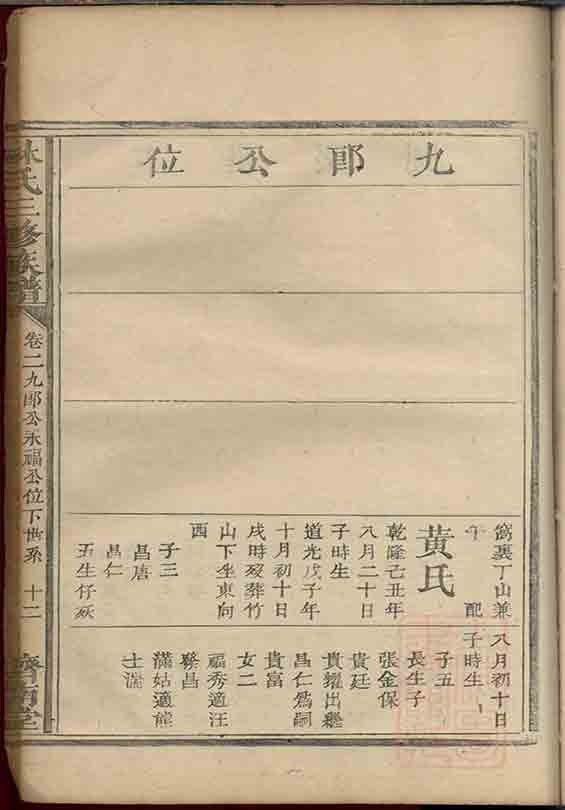 九郎公位
窩裏丁山兼
午　配
黄氏
乾隆己丑年
八月二十日
子時生
道光戊子年
十月初十日
戌時歿葬竹
山下坐東向
西
子三
昌唐
昌仁
五生仔妖
八月初十日
子時生
子五
長生子
張金保
貴廷
貴耀出繼
昌仁為嗣
貴富
女二
福秀適汪
縣昌
滿姑適熊
士湍
林氏三修族譜
卷二九郎公永福公位下世系　十二
濟南堂